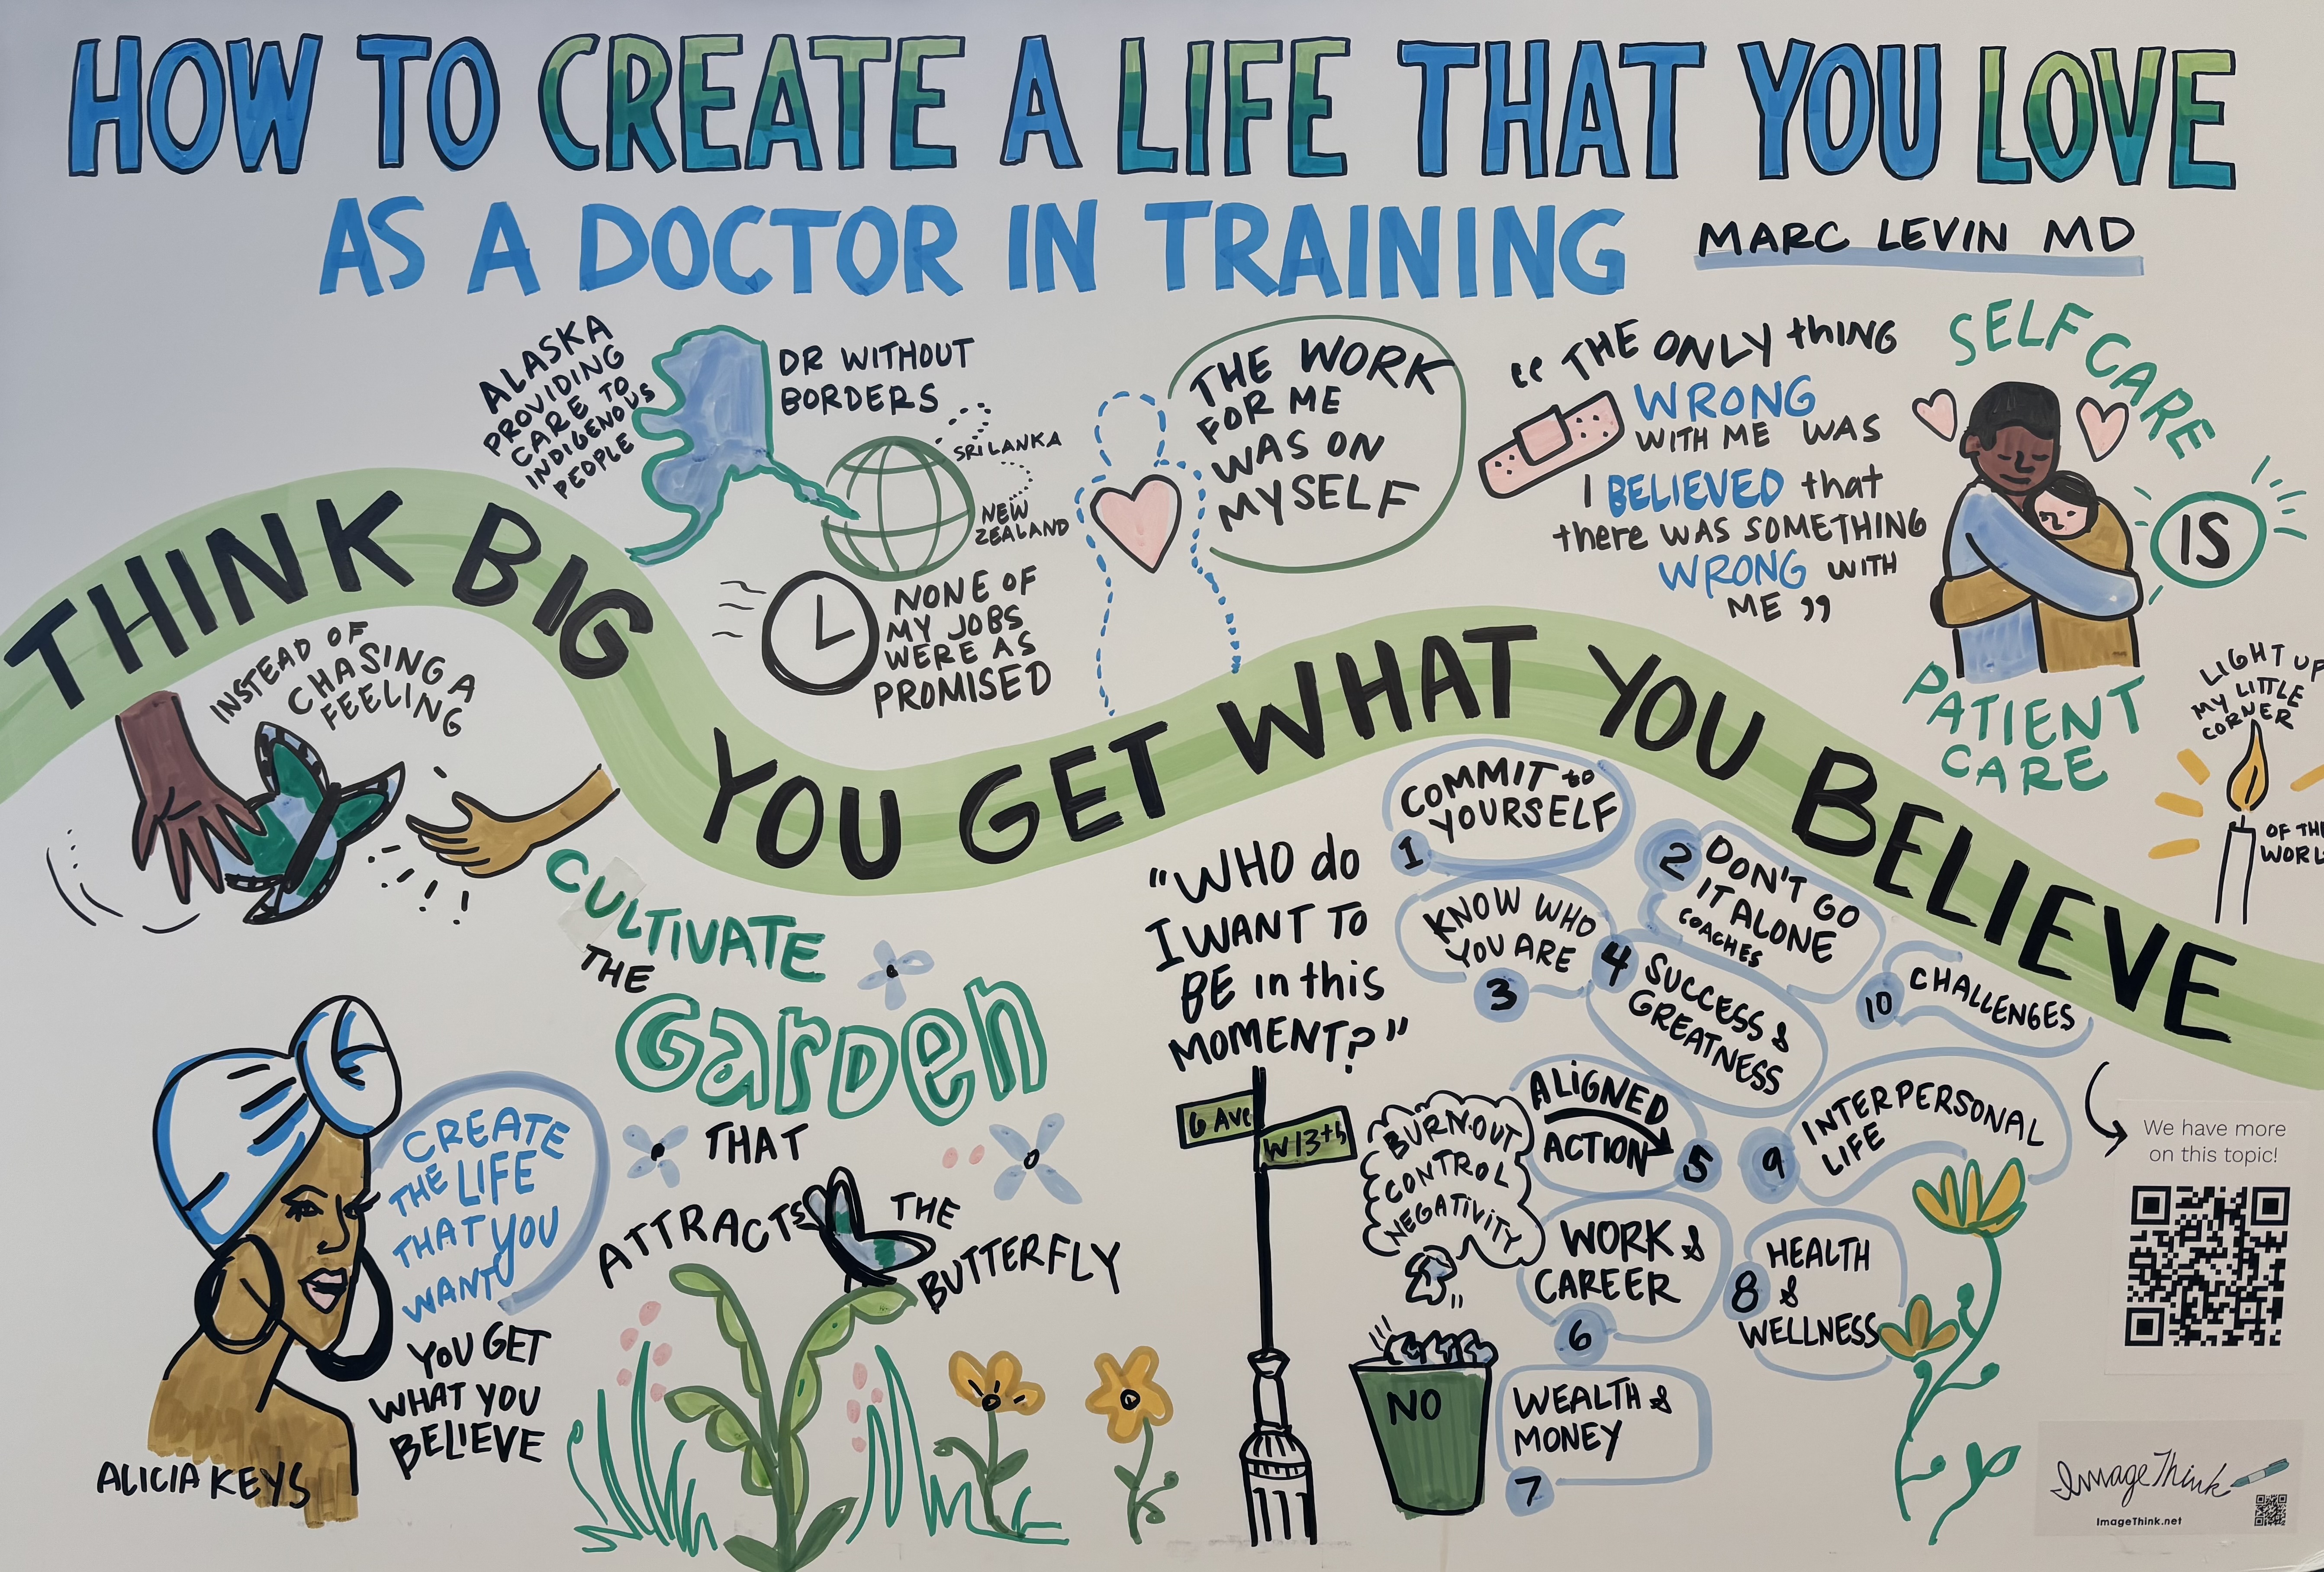 HOW TO CREATE A LIFE THAT YOU LOVE
AS A DOCTOR IN TRAINING
MARC LEVIN MD
ALASKA
PROVIDING
CARE TO
INDIGENOUS
PEOPLE
DR WITHOUT
BORDERS
SRI LANKA
NEW
ZEALAND
NONE OF
MY JOBS
WERE AS
PROMISED
THE WORK
FOR ME
WAS ON
MYSELF
"THE ONLY thING
WRONG
WITH ME WAS
I BELIEVED that
there WAS SOMETHING
WRONG WITH
ME"
SELF CARE
IS
PATIENT
CARE
LIGHT UP
MY LITTLE
CORNER
OF THE
WORL
THINK BIG
YOU GET WHAT YOU BELIEVE
INSTEAD OF
CHASING A
FEELING
CULTIVATE
THE
GarDen
THAT
ATTRACTS
THE
BUTTERFLY
CREATE
THE LIFE
THAT YOU
WANT
YOU GET
WHAT YOU
BELIEVE
ALICIA KEYS
"WHO do
I WANT TO
BE in this
MOMENT?"
6 AVE
W 13th
COMMIT to
YOURSELF
1
2
DON'T GO
IT ALONE
COACHES
KNOW WHO
YOU ARE
3
4
SUCCESS &
GREATNESS
ALIGNED
ACTION
5
BURN-OUT
CONTROL
NEGATIVITY
NO
WORK &
CAREER
6
WEALTH &
MONEY
7
8
HEALTH
&
WELLNESS
9
INTERPERSONAL
LIFE
10
CHALLENGES
We have more
on this topic!
ImageThink
ImageThink.net